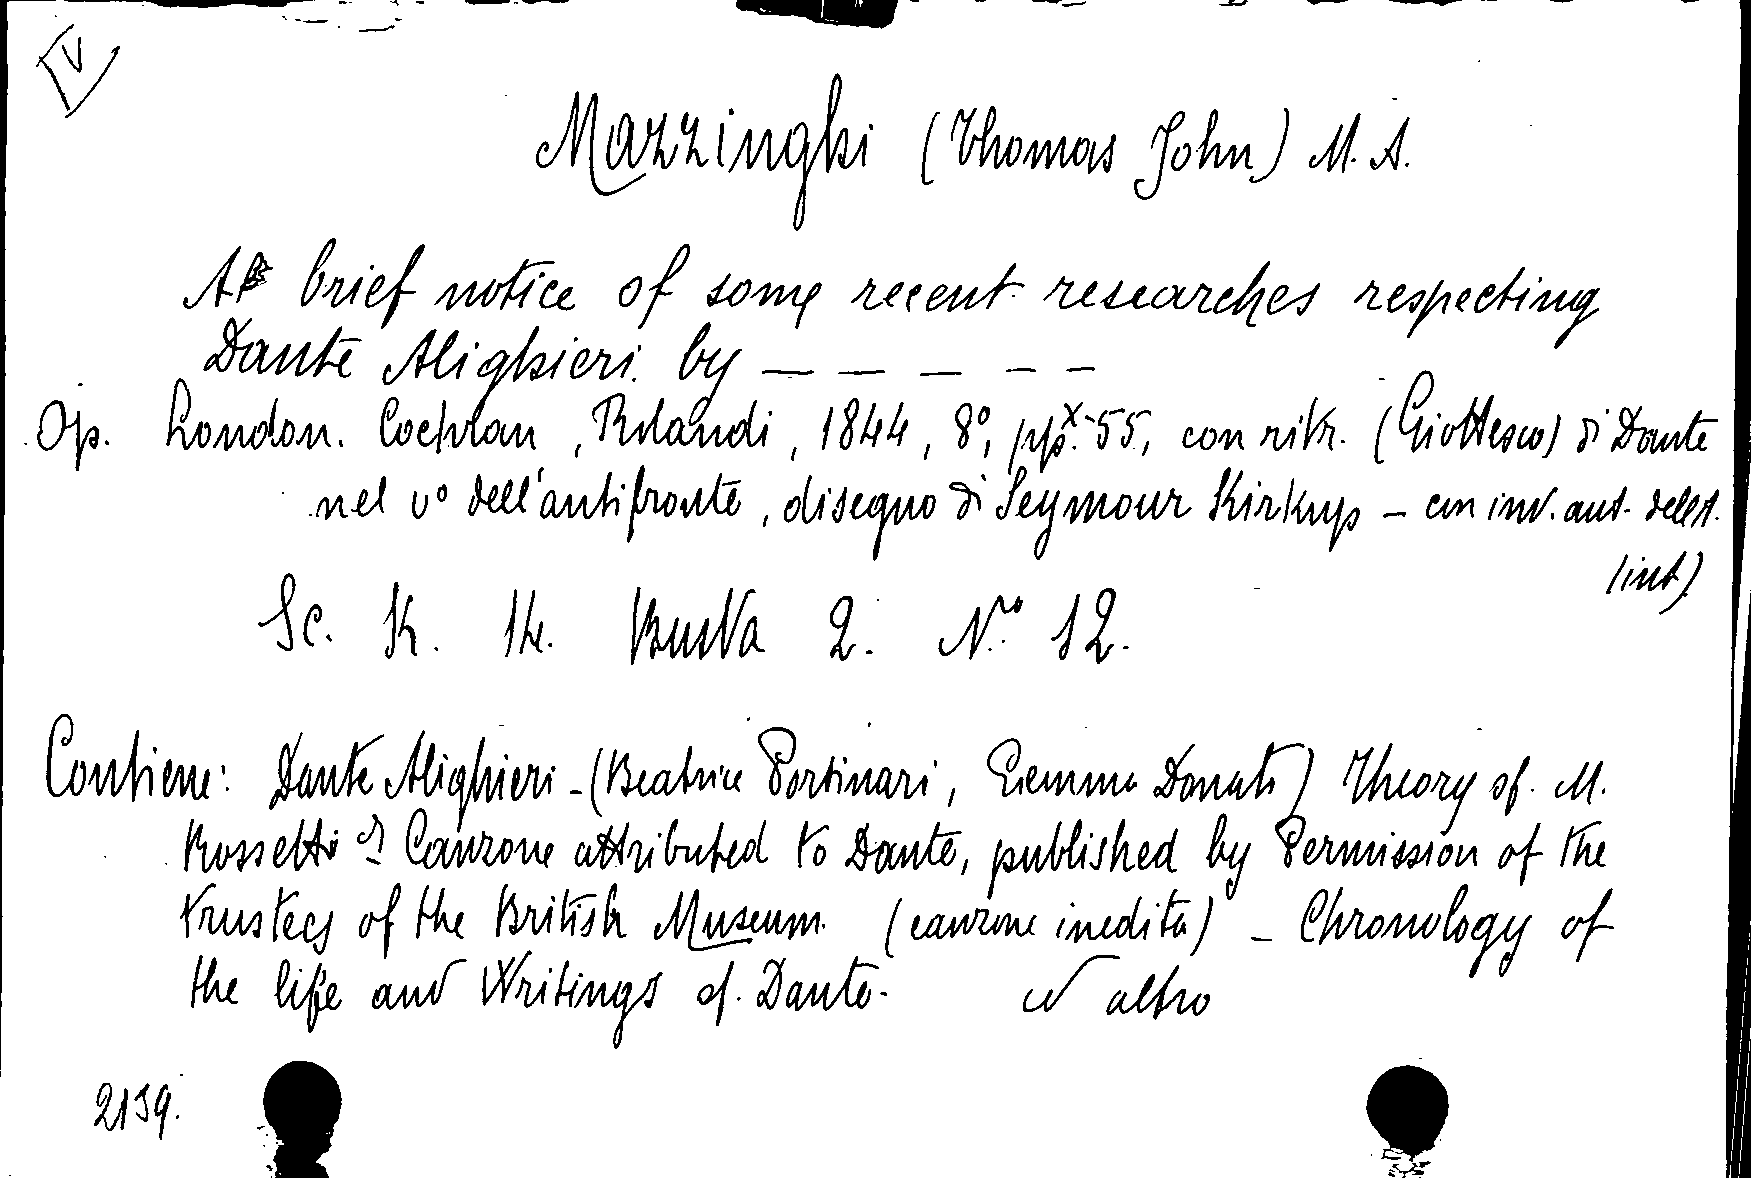 V
Mazzinghi (Thomas John) M. A.
A brief notice of some recent researches respecting
Dante Alighieri. by — — — — —
Op. London. Cochran, Rolandi, 1844, 8°, pp. X-55, con ritr. (Giottesco) di Dante
nel v° dell'antifronte, disegno di Seymour Kirkup – con inv. aut. dell'A.
(int)
Sc. K. 14. Busta 2. N.° 12.
Contiene: Dante Alighieri - (Beatrice Portinari, Gemma Donati) Theory of. M.
Rossetti Canzone attributed to Dante, published by Permission of the
trustees of the British Museum. (canzone inedita) – Chronology of
the life and Writings of. Dante. ed altro
2139.